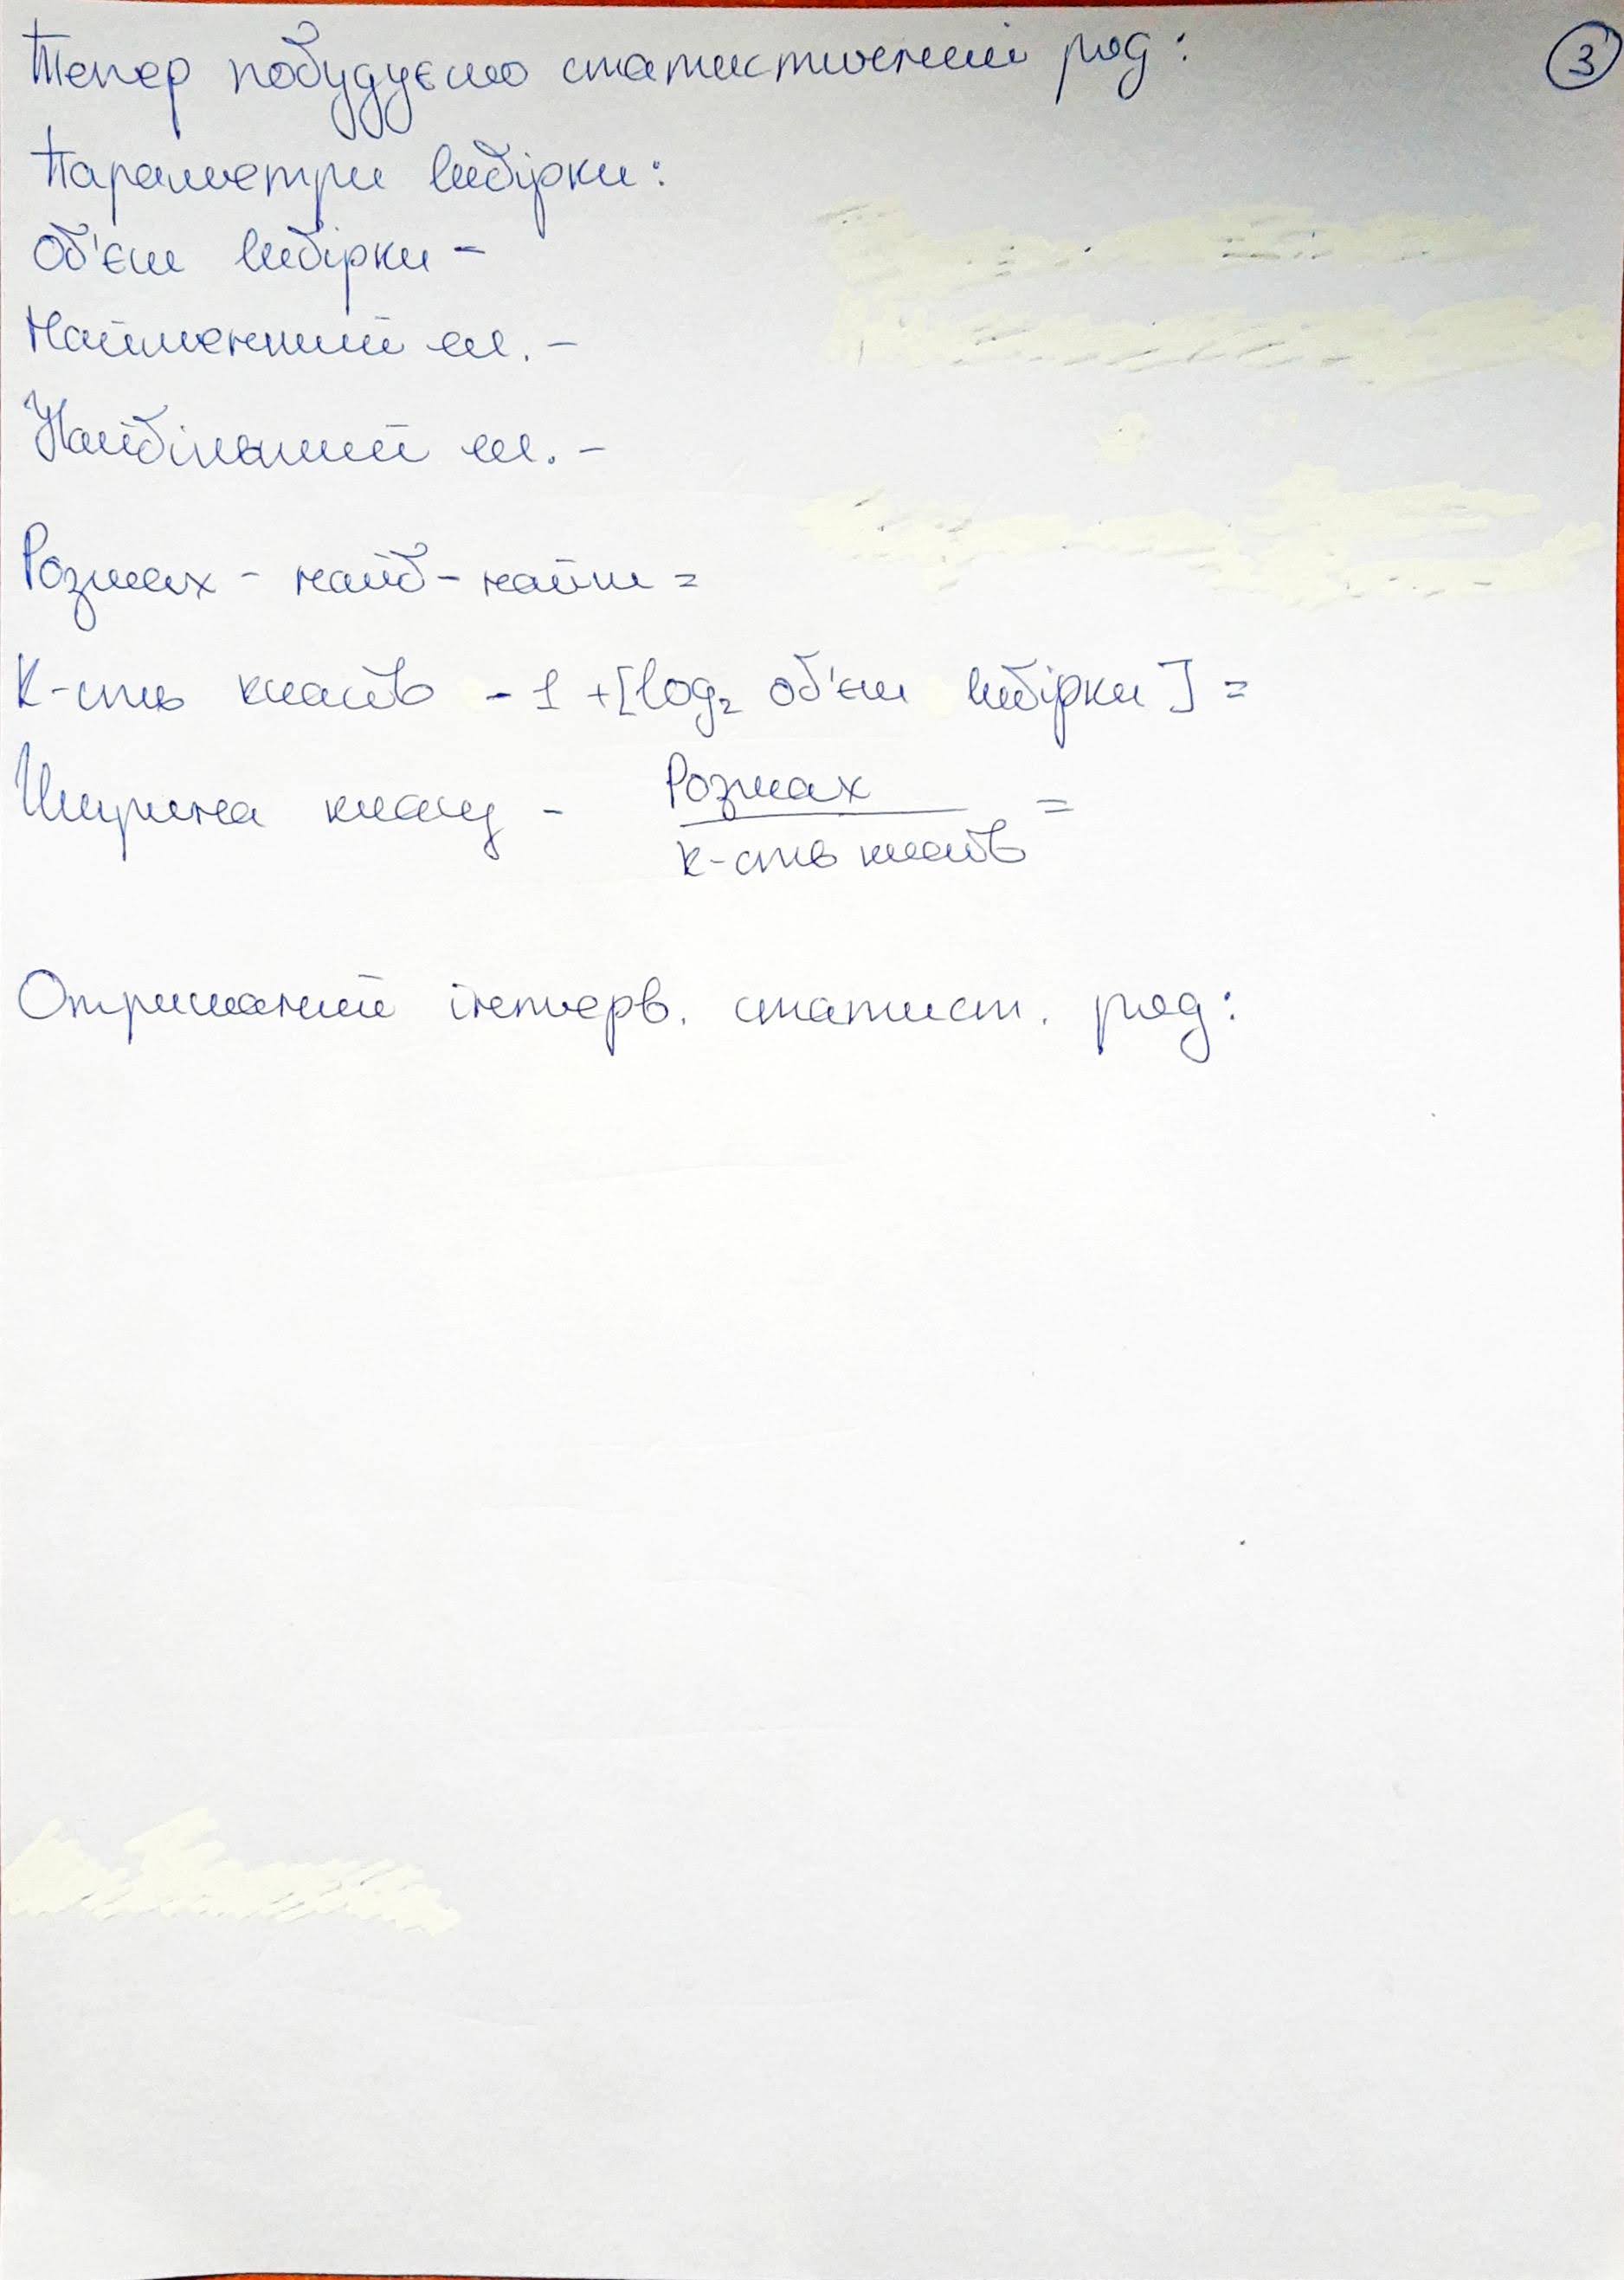 Тепер побудуємо статистичний ряд: 3
Параметри вибірки:
Об'єм вибірки -
Найменший ел. -
Найбільший ел. -
Розмах - найб - найм =
К-сть класів - 1 + [log₂ об'єм вибірки] =
Ширина класу - Розмах / к-сть класів =
Отриманий інтерв. статист. ряд: